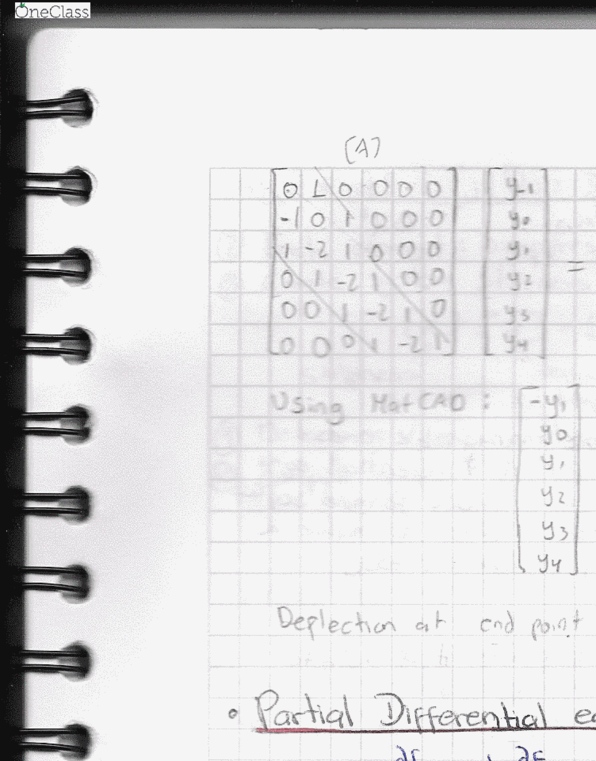 OneClass
(A)
0 1 0 0 0 0 y-1
-1 0 1 0 0 0 y0
1 -2 1 0 0 0 y1
0 1 -2 1 0 0 y2 =
0 0 1 -2 1 0 y3
0 0 0 1 -2 1 y4
Using MatCAD : -y1
y0
y1
y2
y3
y4
Deplection at end point
• Partial Differential e
∂f ∂f